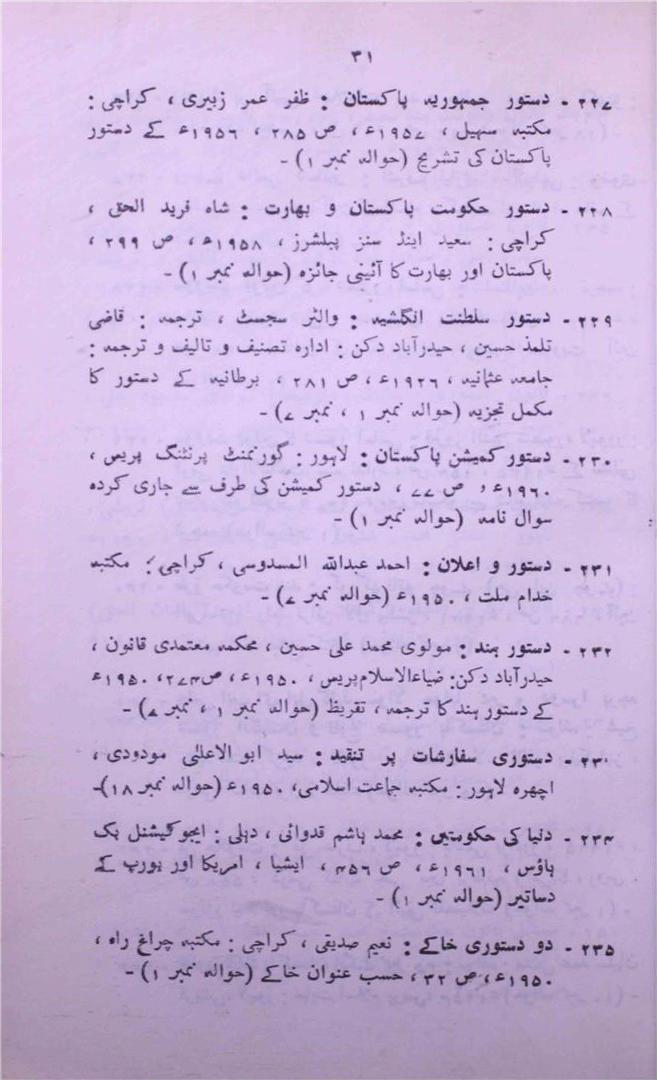 ۳۱
۲۲۷ - دستور جمہوریہ پاکستان : ظفر عمر زبیری ، کراچی :
مکتبہ سہیل ، ۱۹۵۷ء ، ص ۲۸۵ ، ۱۹۵۶ء کے دستور
پاکستان کی تشریح (حوالہ نمبر ۱) -
۲۲۸ - دستور حکومت پاکستان و بھارت : شاہ فرید الحق ،
کراچی : سعید اینڈ سنز پبلشرز ، ۱۹۵۸ء ، ص ۲۹۹ ،
پاکستان اور بھارت کا آئینی جائزہ (حوالہ نمبر ۱) -
۲۲۹ - دستور سلطنت انگلشیہ : والٹر سجسٹ ، ترجمہ : قاضی
تلمذ حسین ، حیدرآباد دکن : ادارہ تصنیف و تالیف و ترجمہ :
جامعہ عثمانیہ ، ۱۹۲۶ء ، ص ۲۸۱ ، برطانیہ کے دستور کا
مکمل تجزیہ (حوالہ نمبر ۱ ، نمبر ۷) -
۲۳۰ - دستور کمیشن پاکستان : لاہور : گورنمنٹ پرنٹنگ پریس ،
۱۹۶۰ء ، ص ۷۷ ، دستور کمیشن کی طرف سے جاری کردہ
سوال نامہ (حوالہ نمبر ۱) -
۲۳۱ - دستور و اعلان : احمد عبداللہ المسدوسی ، کراچی : مکتبہ
خدام ملت ، ۱۹۵۰ء (حوالہ نمبر ۷) -
۲۳۲ - دستور ہند : مولوی محمد علی حسین ، محکمہ معتمدی قانون ،
حیدرآباد دکن : ضیاءالاسلام پریس ، ۱۹۵۰ء ، ص ۲۷۴ ، ۱۹۵۰ء
کے دستور ہند کا ترجمہ ، تقریظ (حوالہ نمبر ۱ ، نمبر ۷) -
۲۳۰ - دستوری سفارشات پر تنقید : سید ابو الاعلیٰ مودودی ،
اچھرہ لاہور : مکتبہ جماعت اسلامی ، ۱۹۵۰ء (حوالہ نمبر ۱۸) -
۲۳۴ - دنیا کی حکومتیں : محمد ہاشم قدوائی ، دہلی : ایجوکیشنل بک
ہاؤس ، ۱۹۶۱ء ، ص ۴۵۶ ، ایشیا ، امریکا اور یورپ کے
دساتیر (حوالہ نمبر ۱) -
۲۳۵ - دو دستوری خاکے : نعیم صدیقی ، کراچی : مکتبہ چراغ راہ ،
۱۹۵۰ء ، ص ۳۲ ، حسب عنوان خاکے (حوالہ نمبر ۱) -